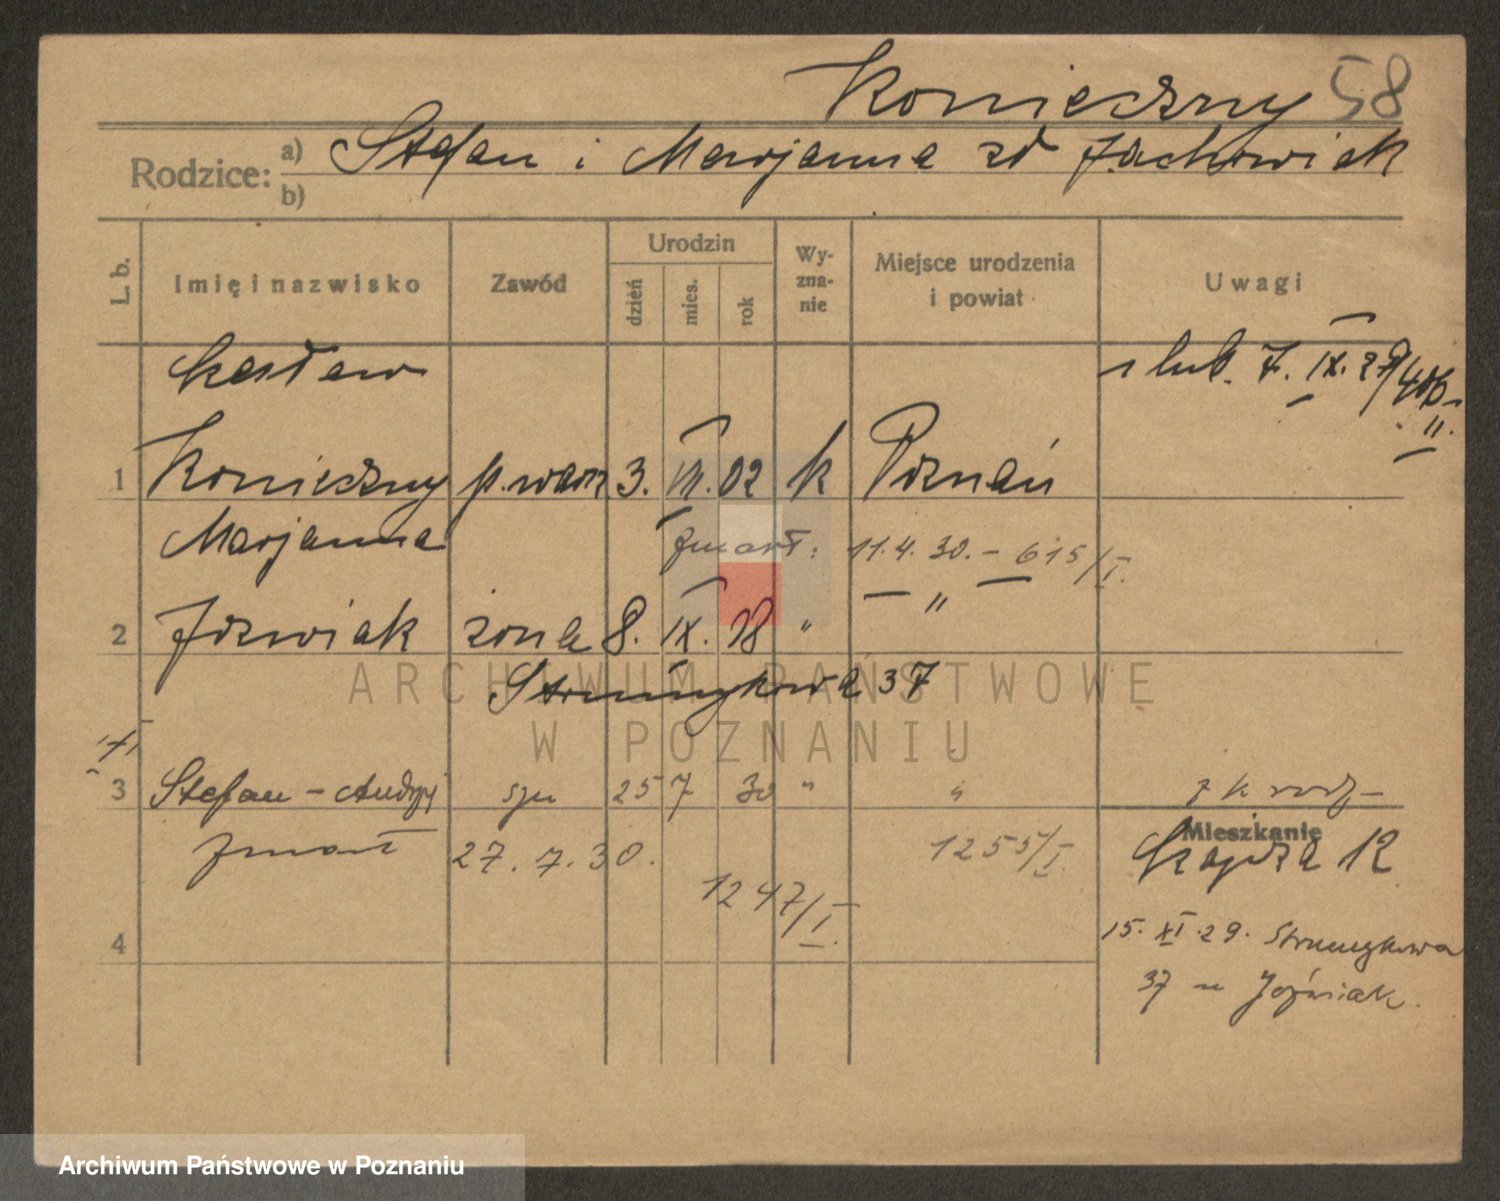 Konieczny 58
Rodzice: a) Stefan i Marjanna zd Jachowiak
b)
L. b. Imię i nazwisko Zawód Urodzin dzień mies. rok Wyznanie Miejsce urodzenia i powiat Uwagi
Czesław ślub. 7. IX. 29/406
II.
1 Konieczny p. warz 3. VII. 02 k Poznań
Marjanna zmarł: 11.4.30. - 615/I.
2 Jóźwiak żona 8. IX. "  "
Strumykowa 37
3 Stefan - Andrzej syn 25 7 30 " " z k rodz-
zmarł 27. 7. 30. 1255/I.
1247/I.
4
Mieszkanie
Czajcza 12
15. XI. 29. Strumykowa
37 u Jóźwiak.
ARCHIWUM PAŃSTWOWE
W POZNANIU
Archiwum Państwowe w Poznaniu